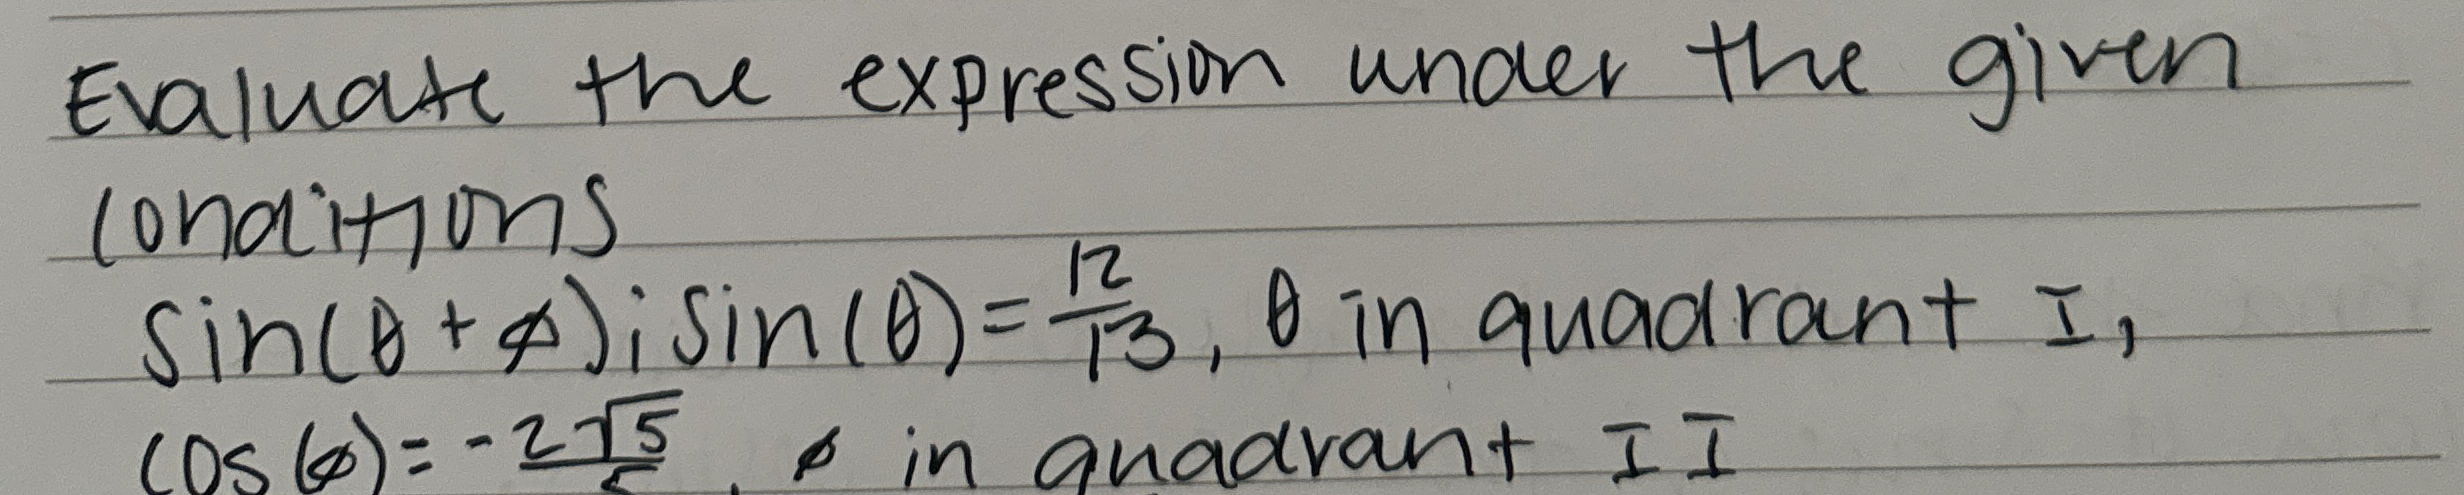 Evaluate the expression under the given
conditions
sin(θ + ϕ); sin(θ) = 12/13, θ in quadrant I,
cos(ϕ) = -2√5/5, ϕ in quadrant II